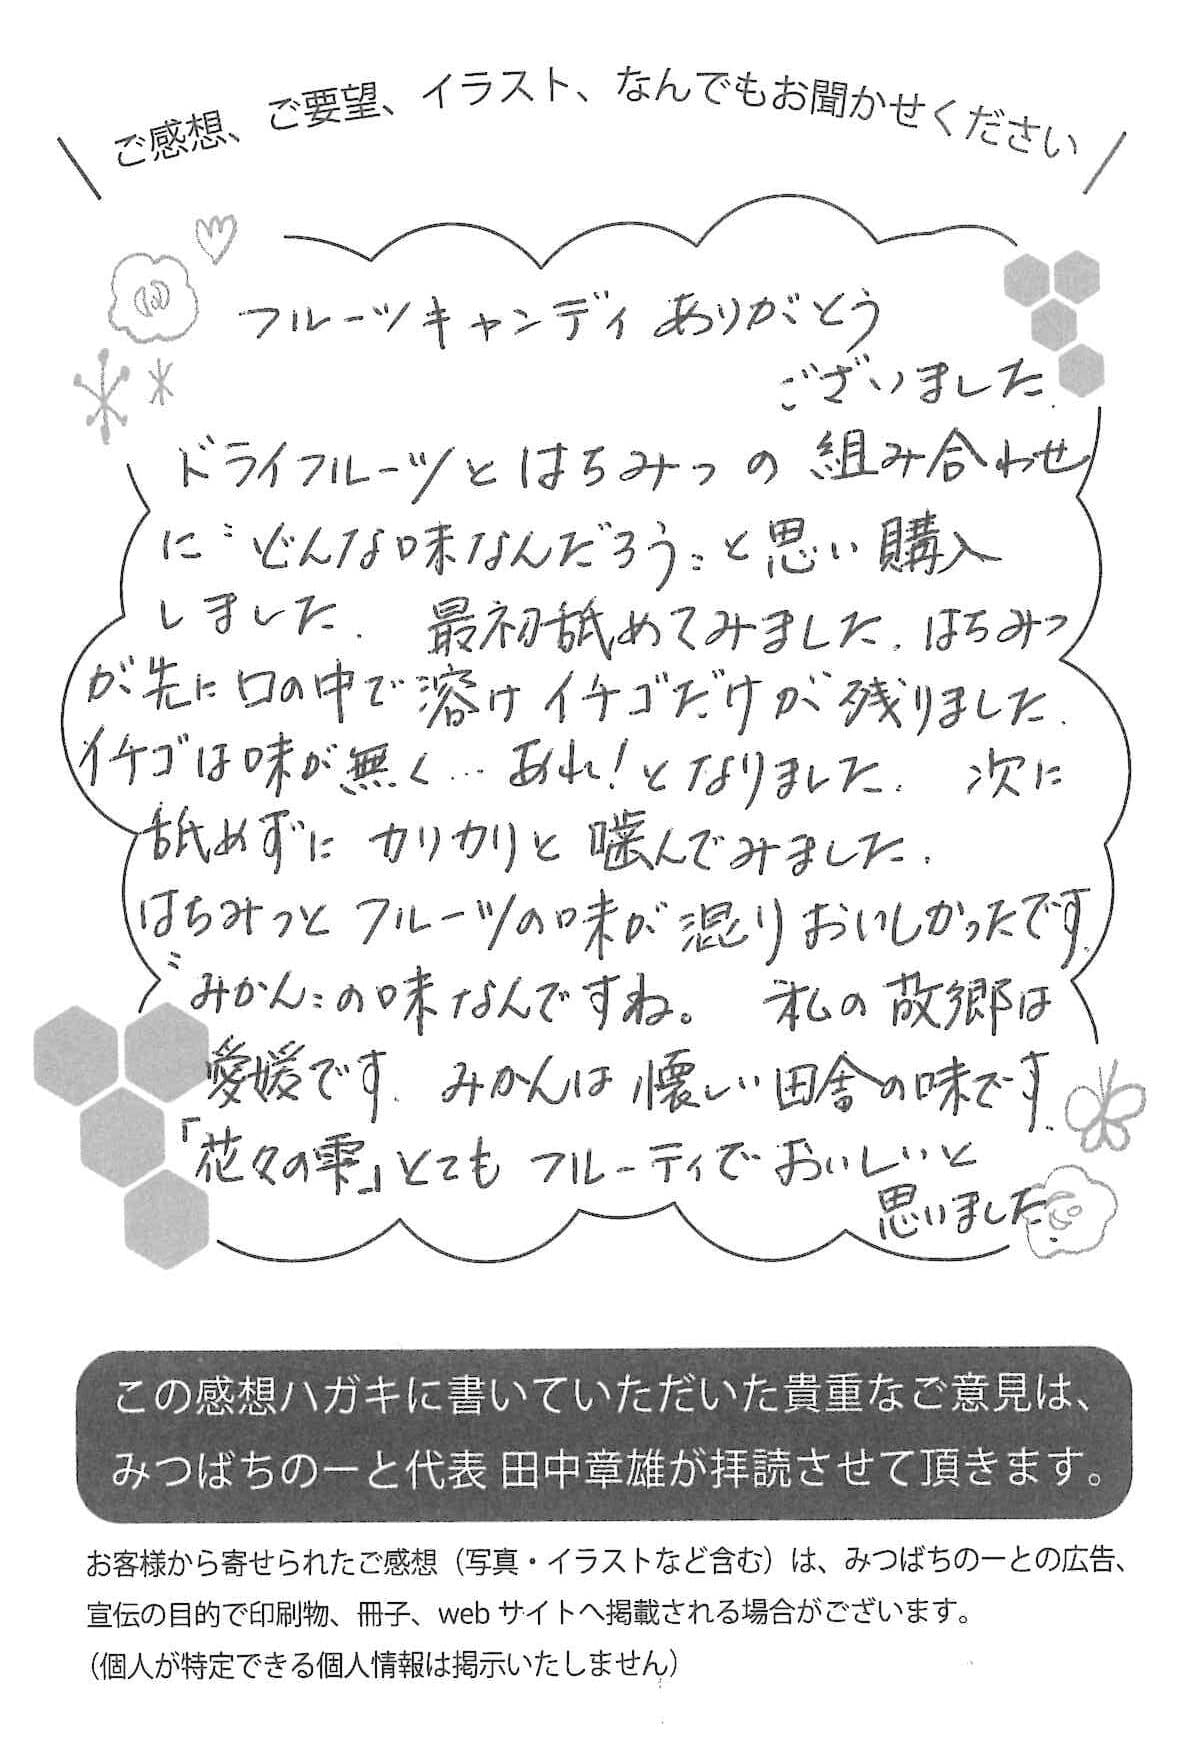 ご感想、ご要望、イラスト、なんでもお聞かせください
フルーツキャンディありがとう
ございました.
ドライフルーツとはちみつの組み合わせ
に〝どんな味なんだろう〟と思い購入
しました. 最初舐めてみました. はちみつ
が先に口の中で溶けイチゴだけが残りました.
イチゴは味が無く…あれ!となりました. 次に
舐めずにカリカリと噛んでみました.
はちみつとフルーツの味が混りおいしかったです.
〝みかん〟の味なんですね。 私の故郷は
愛媛です. みかんは懐しい田舎の味です.
「花々の雫」とてもフルーティでおいしいと
思いました.
この感想ハガキに書いていただいた貴重なご意見は、
みつばちのーと代表 田中章雄が拝読させて頂きます。
お客様から寄せられたご感想(写真・イラストなど含む)は、みつばちのーとの広告、
宣伝の目的で印刷物、冊子、web サイトへ掲載される場合がございます。
(個人が特定できる個人情報は掲示いたしません)